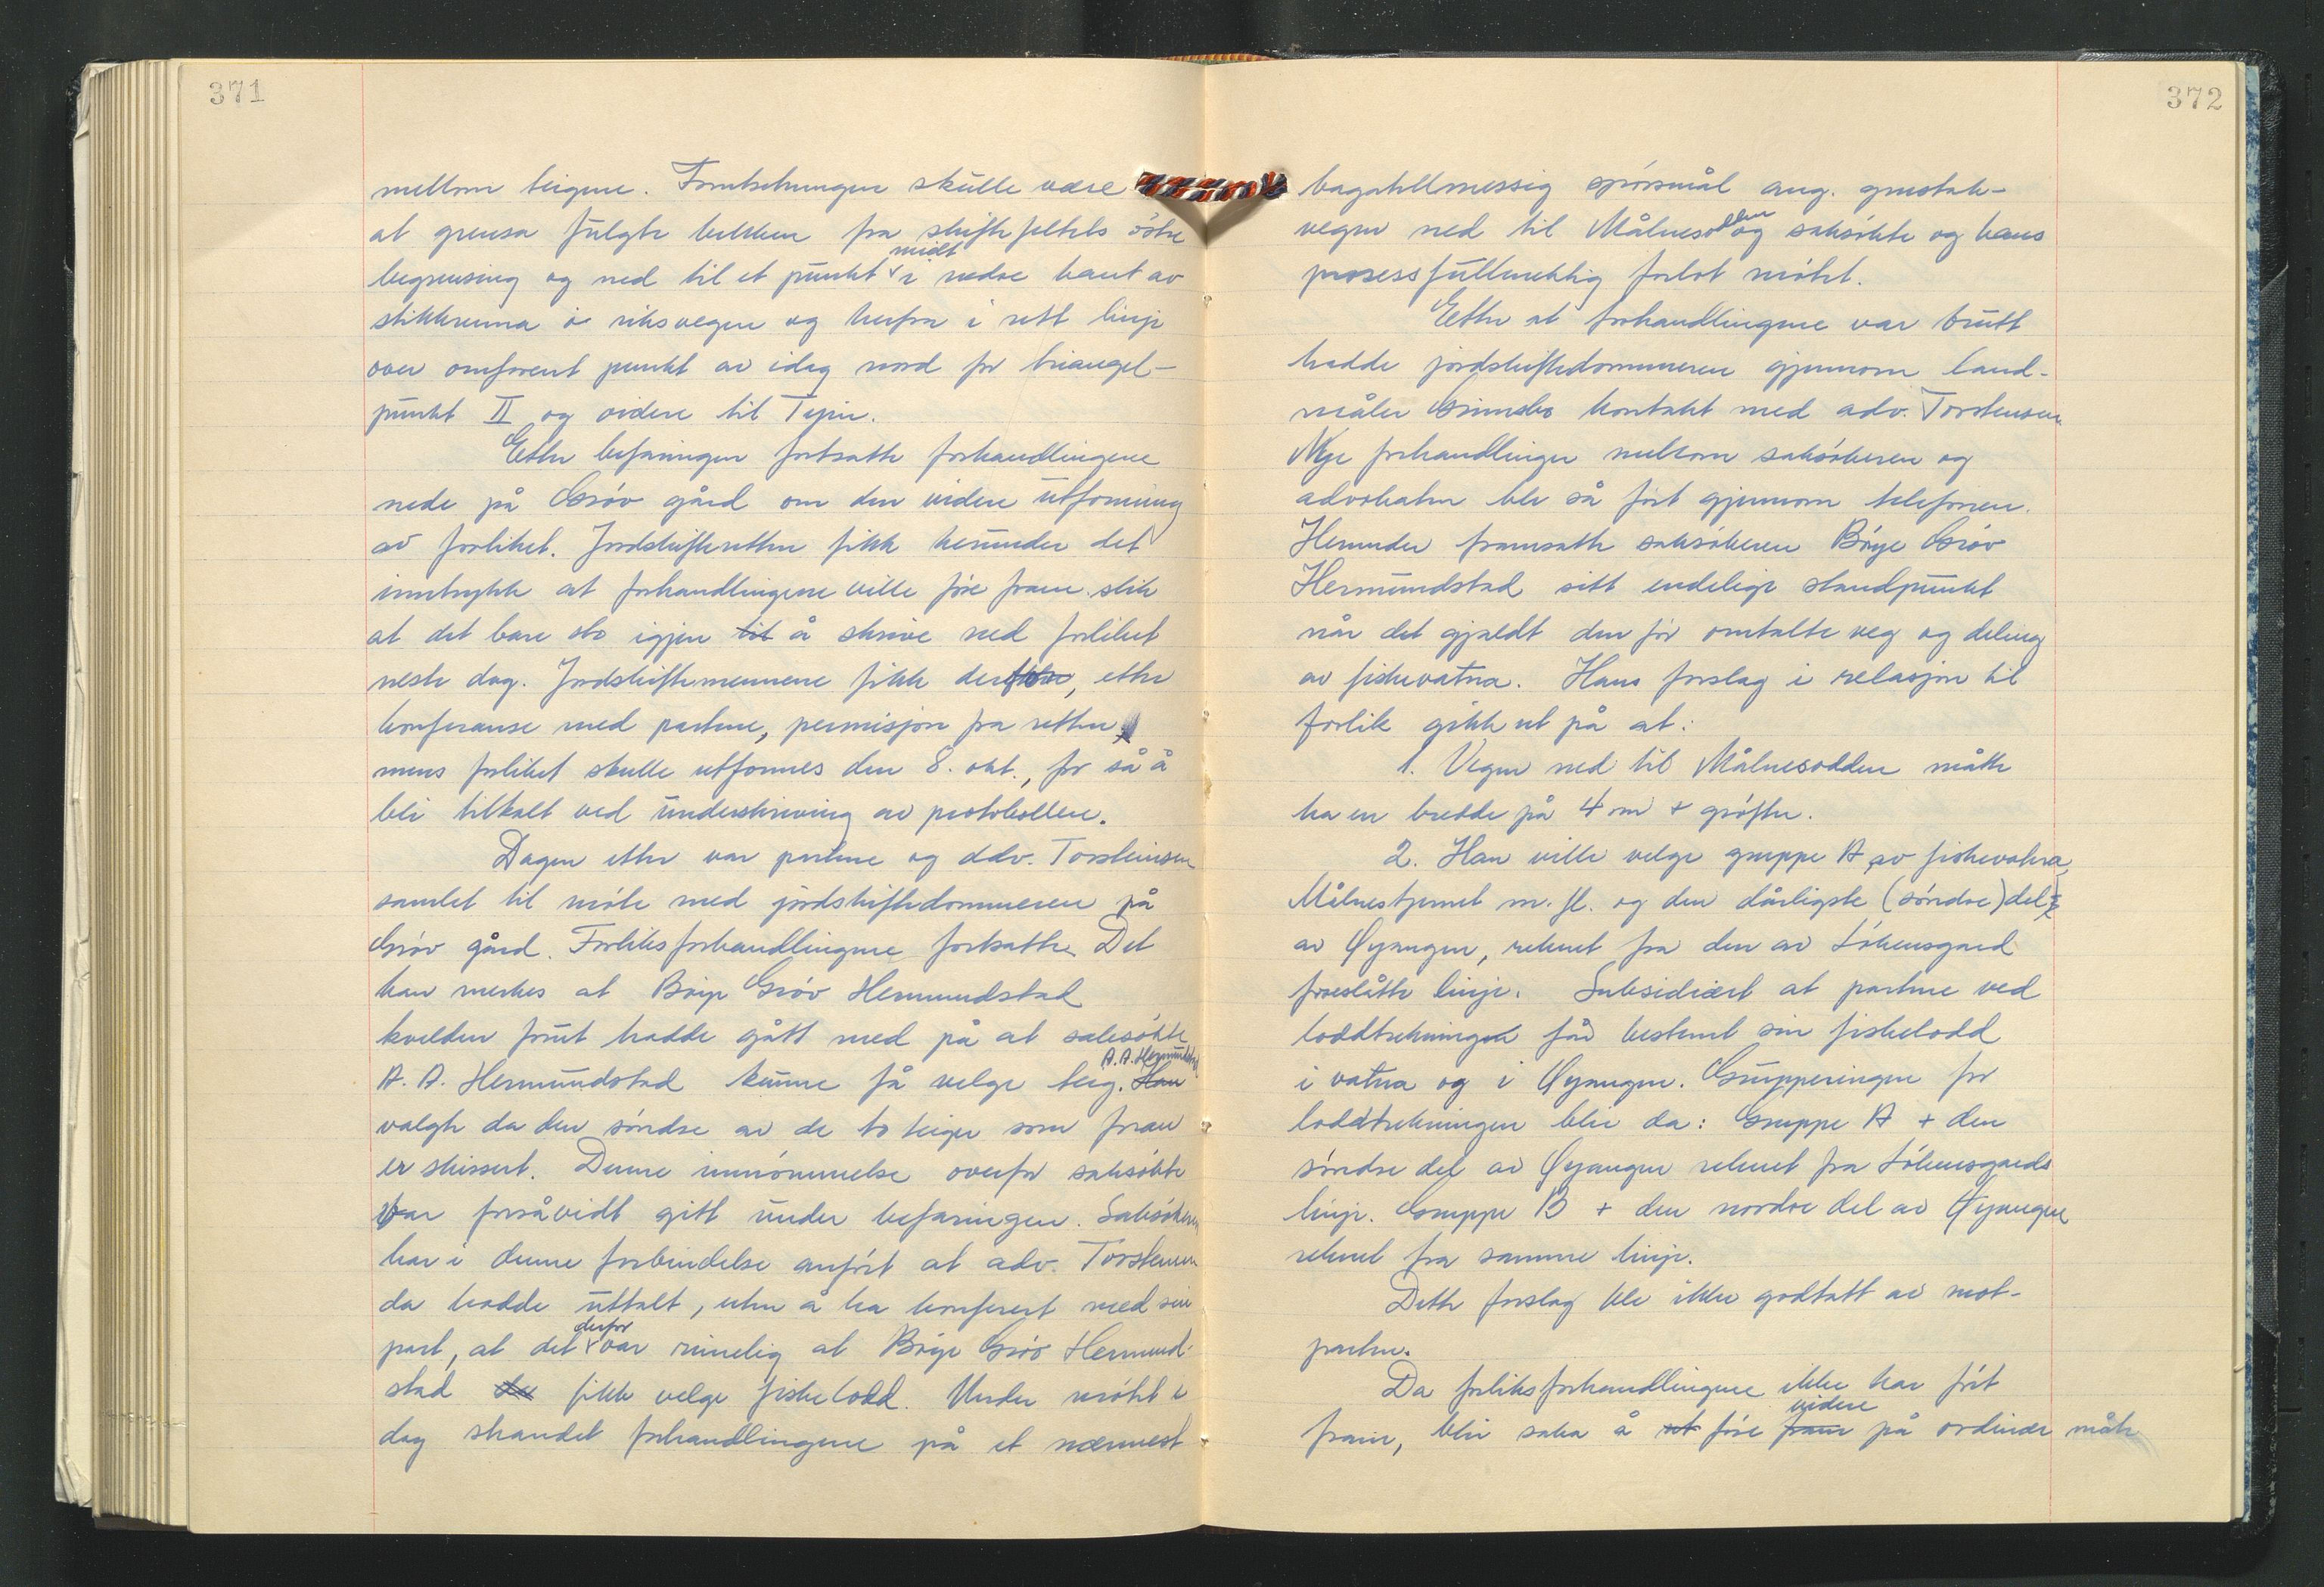 371
mellom teigene. Forutsetningen skulle være
at grensa fulgte bekken fra skiftefeltets östre
begrensing og ned til et punkt midt i nedre kant av
stikkrenna i riksvegen og herfra i rett linje
over omforent punkt av idag nord for triangel-
punkt II og videre til Tyin.
Etter befaringen fortsatte forhandlingene
nede på Gröv gård om den videre utforming
av forliket. Jordskifteretten fikk herunder det
inntrykk at forhandlingene ville före fram slik
at det bare sto igjen til å skrive ned forliket
neste dag. Jordskiftemennene fikk derfor, etter
konferanse med partene, permisjon fra retten
mens forliket skulle utformes den 8. okt., for så å
bli tilkalt ved underskriving av protokollen.
Dagen etter var partene og adv. Torsteinsen
samlet til möte med jordskiftedommeren på
Gröv gård. Forliksforhandlingene fortsatte. Det
kan merkes at Böye Gröv Hermundstad
kvelden forut hadde gått med på at saksökte
A. A. Hermundstad kunne få velge teig. Han A. A. Hermundstad
valgte da den söndre av de to teiger som foran
er skissert. Denne innrömmelse overfor saksökte
var forsåvidt gitt under befaringen. Saksökeren
har i denne forbindelse anfört at adv. Torsteinsen
da hadde uttalt, uten å ha konferert med sin
part, at det derfor var rimelig at Böye Gröv Hermund-
stad da fikk velge fiskelodd. Under mötet i
dag strandet forhandlingene på et nærmest
372
bagatellmessig spörsmål ang. grustak-
vegen ned til Målnesodden og saksökte og hans
prosessfullmektig forlot mötet.
Etter at forhandlingene var brutt
hadde jordskiftedommeren gjennom land-
måler kontakt med adv. Torsteinsen
Nye forhandlinger mellom saksökeren og
advokaten ble så fört gjennom telefonen.
Herunder framsatte saksökeren Böye Gröv
Hermundstad sitt endelige standpunkt
når det gjaldt den för omtalte veg og deling
av fiskevatna. Hans forslag i relasjon til
forlik gikk ut på at:
1. Vegen ned til Målnesodden måtte
ha en bredde på 4 m + gröfter.
2. Han ville velge gruppe A av fiskevatna,
Målnestjernet m. fl. og den dårligste (söndre) del
av Öyangen, reknet fra den av Lökensgard
foreslåtte linje. Subsidiært at partene ved
loddtrekningen får bestemt sin fiskelodd
i vatna og i Öyangen. Grupperingen for
loddtrekningen blir da: Gruppe A + den
söndre del av Öyangen reknet fra Lökensgards
linje. Gruppe B + den nordre del av Öyangen
reknet fra samme linje.
Dette forslag ble ikke godtatt av mot-
parten.
Da forliksforhandlingene ikke har fört
fram, blir saka å före fram videre på ordinær måte